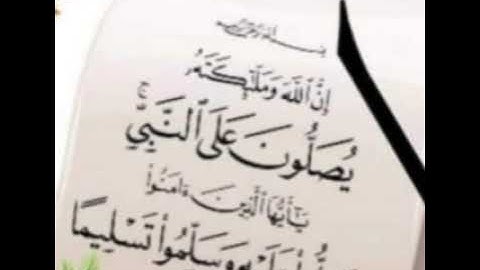 بسم الله الرحمن الرحيم
إِنَّ ٱللَّهَ وَمَلَٰٓئِكَتَهُۥ
يُصَلُّونَ عَلَى ٱلنَّبِيِّ ۚ
يَٰٓأَيُّهَا ٱلَّذِينَ ءَامَنُوا۟
صَلُّوا۟ عَلَيْهِ وَسَلِّمُوا۟ تَسْلِيمًا